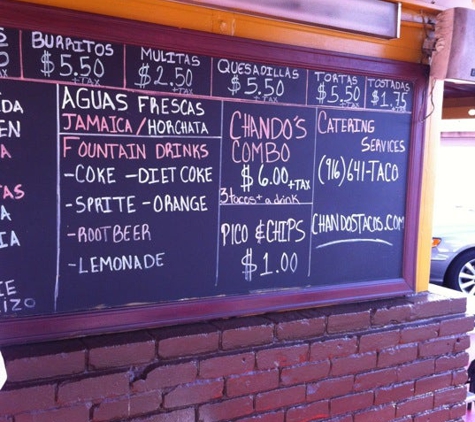 BURRITOS
$5.50
+TAX
MULITAS
$2.50
+TAX
QUESADILLAS
$5.50
+TAX
TORTAS
$5.50
+TAX
TOSTADAS
$1.75
+TAX
AGUAS FRESCAS
JAMAICA/HORCHATA
FOUNTAIN DRINKS
-COKE -DIET COKE
-SPRITE -ORANGE
-ROOTBEER
-LEMONADE
CHANDO'S
COMBO
$6.00 +TAX
3 tacos + a drink
PICO & CHIPS
$1.00
CATERING
SERVICES
(916)641-TACO
CHANDOSTACOS.COM